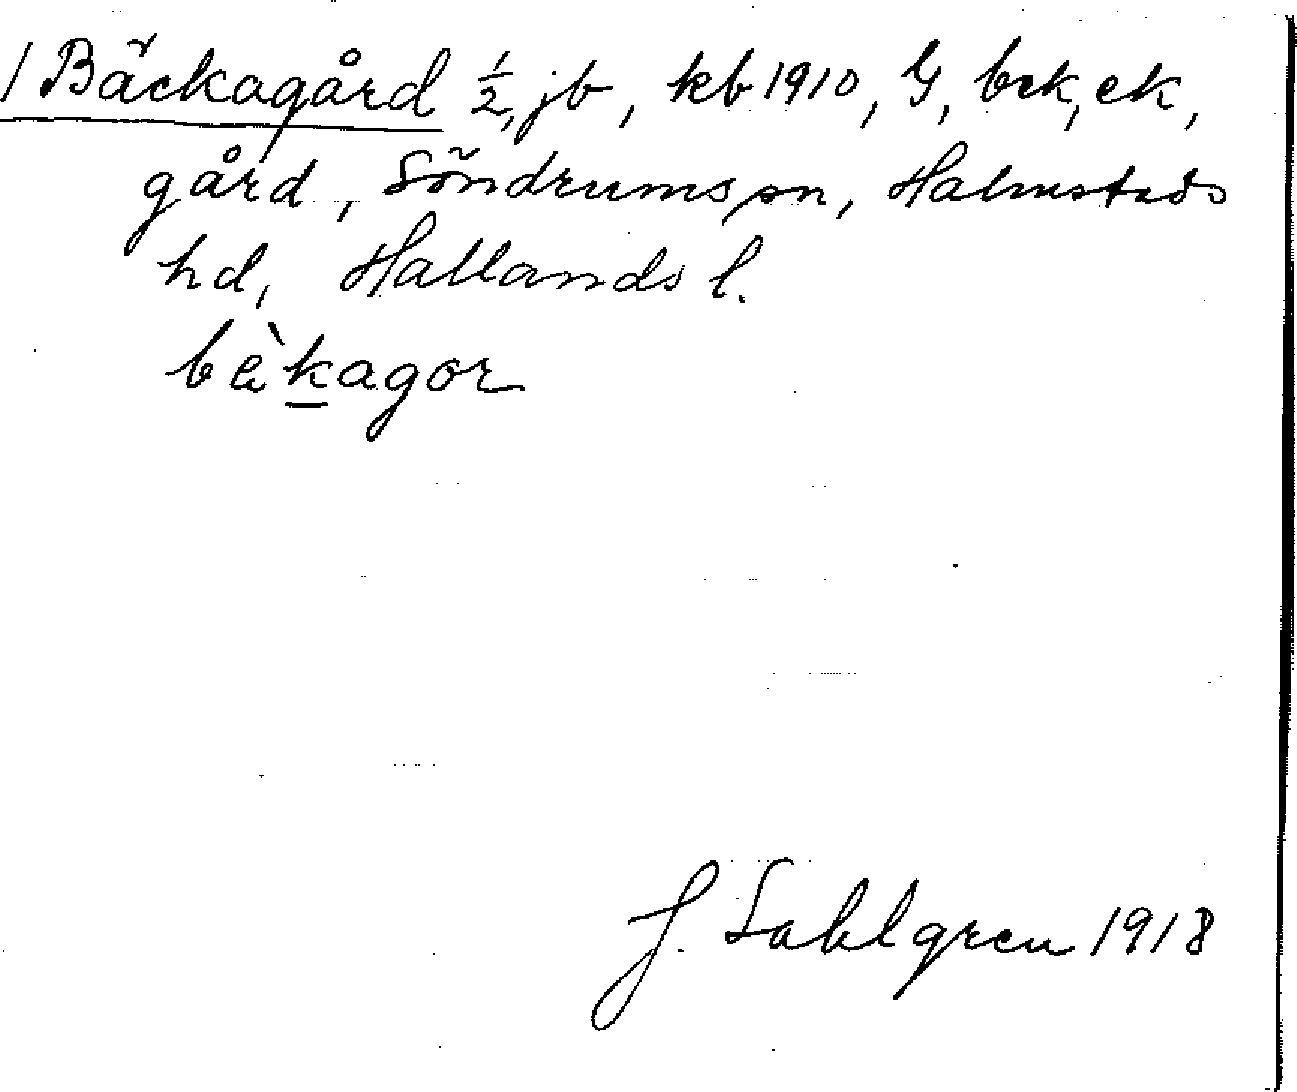 / Bäckagård ½, jb, kb 1910, G, bck, ek,
gård, Söndrums sn, Halmstads
hd, Hallands l.
bækagor
J. Sahlgren 1918